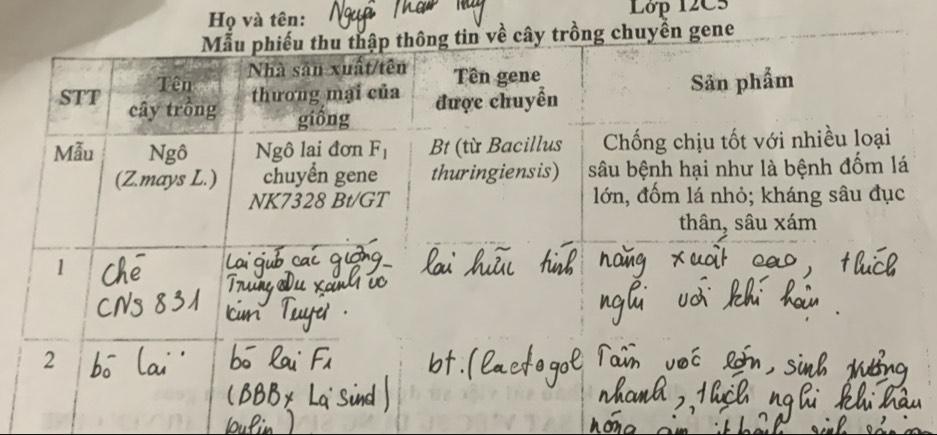 Họ và tên: Lớp 12C5
Mẫu phiếu thu thập thông tin về cây trồng chuyển gene
STT
Tên cây trồng
Nhà sản xuất/tên thương mại của giống
Tên gene được chuyển
Sản phẩm
Mẫu
Ngô
(Z.mays L.)
Ngô lai đơn F₁
chuyển gene
NK7328 Bt/GT
Bt (từ Bacillus
thuringiensis)
Chống chịu tốt với nhiều loại
sâu bệnh hại như là bệnh đốm lá
lớn, đốm lá nhỏ; kháng sâu đục
thân, sâu xám
1
Chè
CNS 831
Lai các giống
Trung xanh
lai hữu tính
năng xuất cao, thích
nghi với khí hậu.
2
bò lai
bò lai F1
(BBB x Lai Sind)
bt. (lactogol
Tầm vóc lớn, sinh trưởng
nhanh, thích nghi khí hậu
nóng ẩm